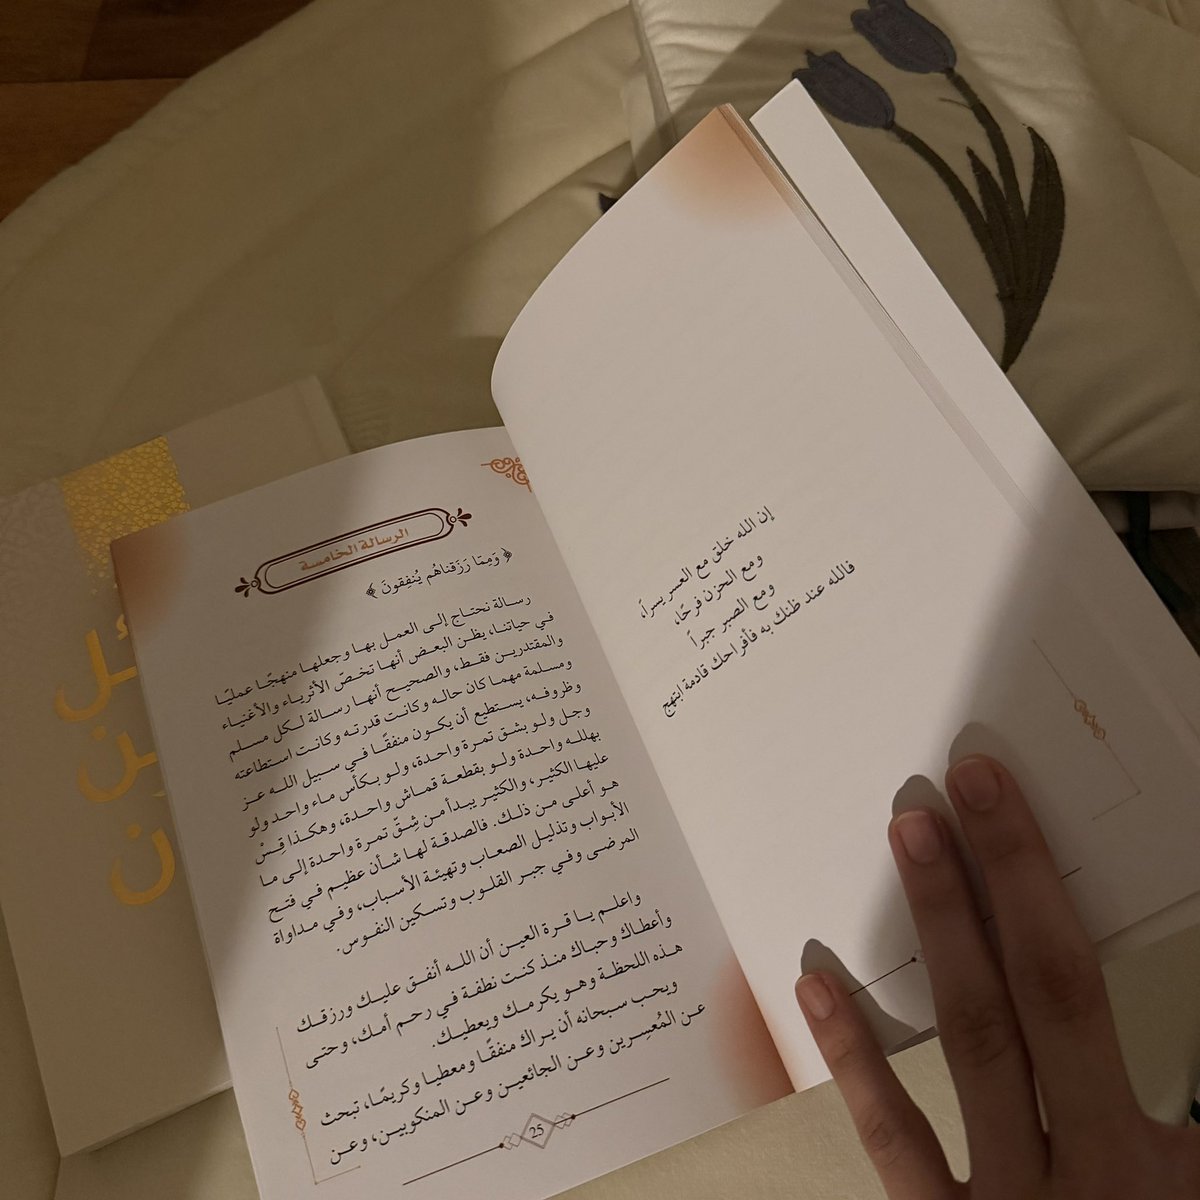 الرسالة الخامسة
﴿ وَمِمَّا رَزَقناهُم يُنفِقونَ ﴾
رسالة نحتاج إلى العمل بها وجعلها منهجًا عمليًا
في حياتنا، يظن البعض أنها تخصّ الأثرياء والأغنياء
والمقتدرين فقط، والصحيح أنها رسالة لكل مسلم
ومسلمة مهما كان حاله وكانت قدرته وكانت استطاعته
وظروفه، يستطيع أن يكون منفقًا في سبيل الله عز
وجل ولو بشق تمرة واحدة، ولو بكأس ماء واحد ولو
بهلله واحدة ولو بقطعة قماش واحدة، وهكذا قِسْ
عليها الكثير، والكثير يبدأ من شِقّ تمرة واحدة إلى ما
هو أعلى من ذلك. فالصدقة لها شأن عظيم في فتح
الأبواب وتذليل الصعاب وتهيئة الأسباب، وفي مداواة
المرضى وفي جبر القلوب وتسكين النفوس.
واعلم يا قرة العين أن الله أنفق عليك ورزقك
وأعطاك وحباك منذ كنت نطفة في رحم أمك، وحتى
هذه اللحظة وهو يكرمك ويعطيك.
ويحب سبحانه أن يراك منفقًا ومعطيا وكريمًا، تبحث
عن المُعسِرين وعن الجائعين وعن المنكوبين، وعن
25
إن الله خلق مع العسر يسراً،
ومع الحزن فرحًا،
ومع الصبر جبراً
فالله عند ظنك به فأفراحك قادمة ابتهج